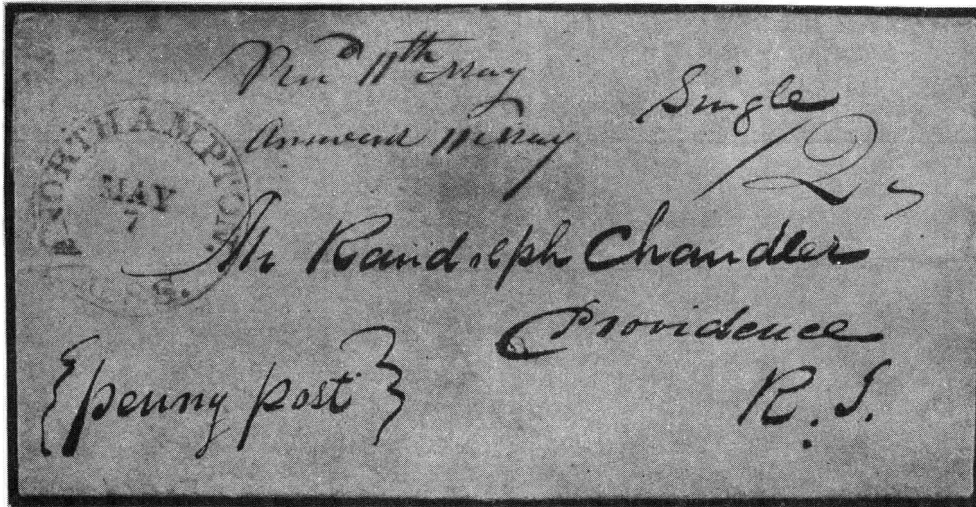 Recd 11th May
Answered 11 May
Single
12
NORTHAMPTON MASS.
MAY
7
Mr Randolph Chandler
Providence
R. I.
{penny post}